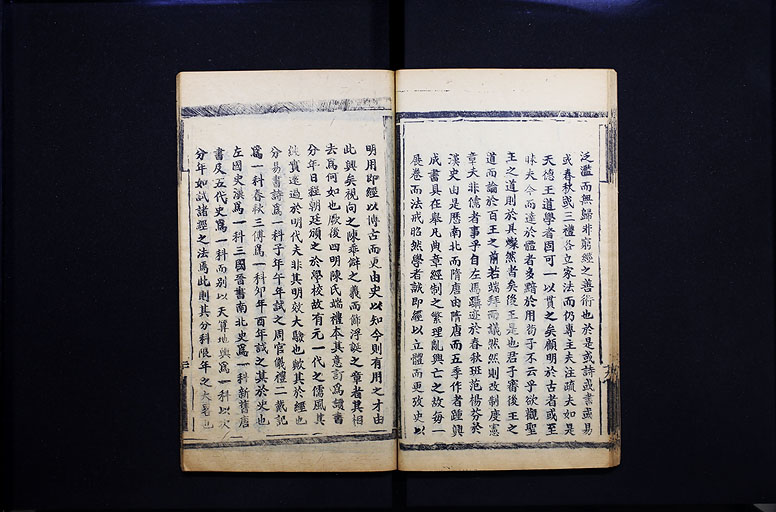 泛濫而無歸非窮經之善術也於是或詩或書或易
或春秋或三禮各立家法而仍專主夫注疏夫如是
天德王道學者固可一以貫之矣顧明於古者或至
昧夫今而達於體者多黯於用荀子不云乎欲觀聖
王之道則於其粲然者矣後王是也君子審後王之
道而論於百王之前若端拜而議然然則改制度憲
章夫非儒者事乎自左馬躡迹於春秋班范楊芬於
漢史由是歷南北而隋唐由隋唐而五季作者踵興
成書具在舉凡典章經制之繁理亂興亡之故每一
展卷而法戒昭然學者誠即經以立體而更攷史以
明用即經以博古而更由史以知今則有用之才由
此興矣視向之陳乖僻之義而飾浮誕之章者其相
去為何如也厥後四明陳氏端禮本其意訂為讀書
分年日程朝廷頒之於學校故有元一代之儒風其
純實遠過於明代夫非其明效大驗也歟其於經也
分易書詩為一科子年午年試之周官儀禮二戴記
為一科春秋三傳為一科卯年酉年試之其於史也
左國史漢為一科三國晉書南北史為一科新舊唐
書及五代史為一科而別以天算地輿為一科以次
分年如試諸經之法焉此則其分科限年之大畧也